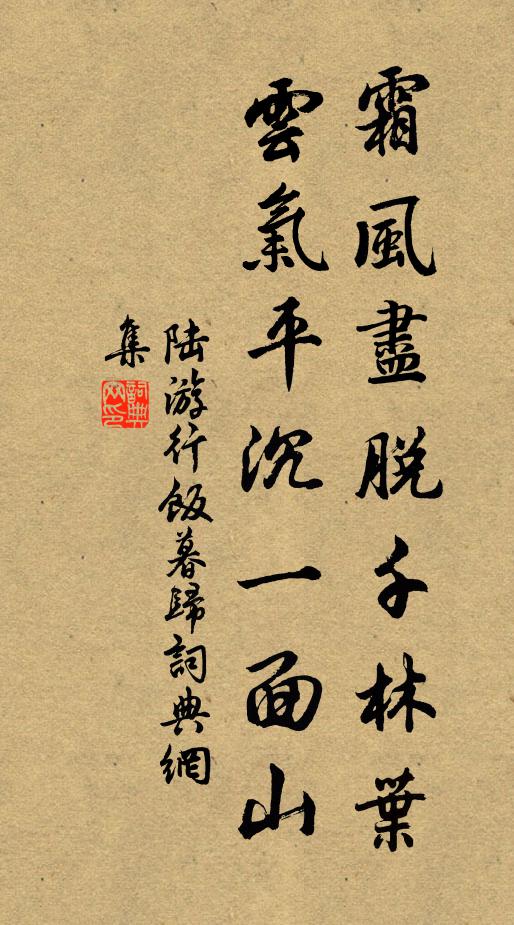 霜風盡脫千林葉
雲氣平沉一面山
陆游行飯暮歸詞典網
集
詞典网印